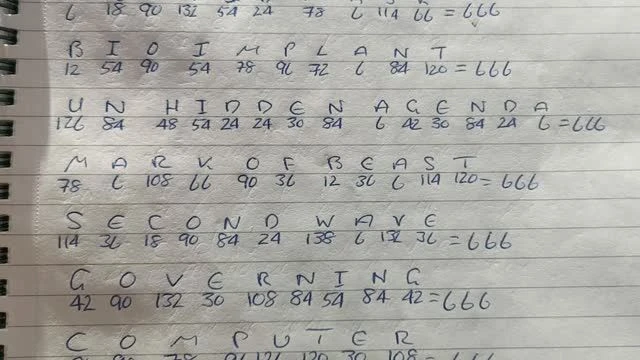 6 18 90 132 54 24 78 6 114 66 = 666
B I O I M P L A N T
12 54 90 54 78 96 72 6 84 120 = 666
U N H I D D E N A G E N D A
126 84 48 54 24 24 30 84 6 42 30 84 24 6 = 666
M A R K O F B E A S T
78 6 108 66 90 36 12 36 6 114 120 = 666
S E C O N D W A V E
114 36 18 90 84 24 138 6 132 36 = 666
G O V E R N I N G
42 90 132 30 108 84 54 84 42 = 666
C O M P U T E R
90 78 96 126 120 30 108 = 666